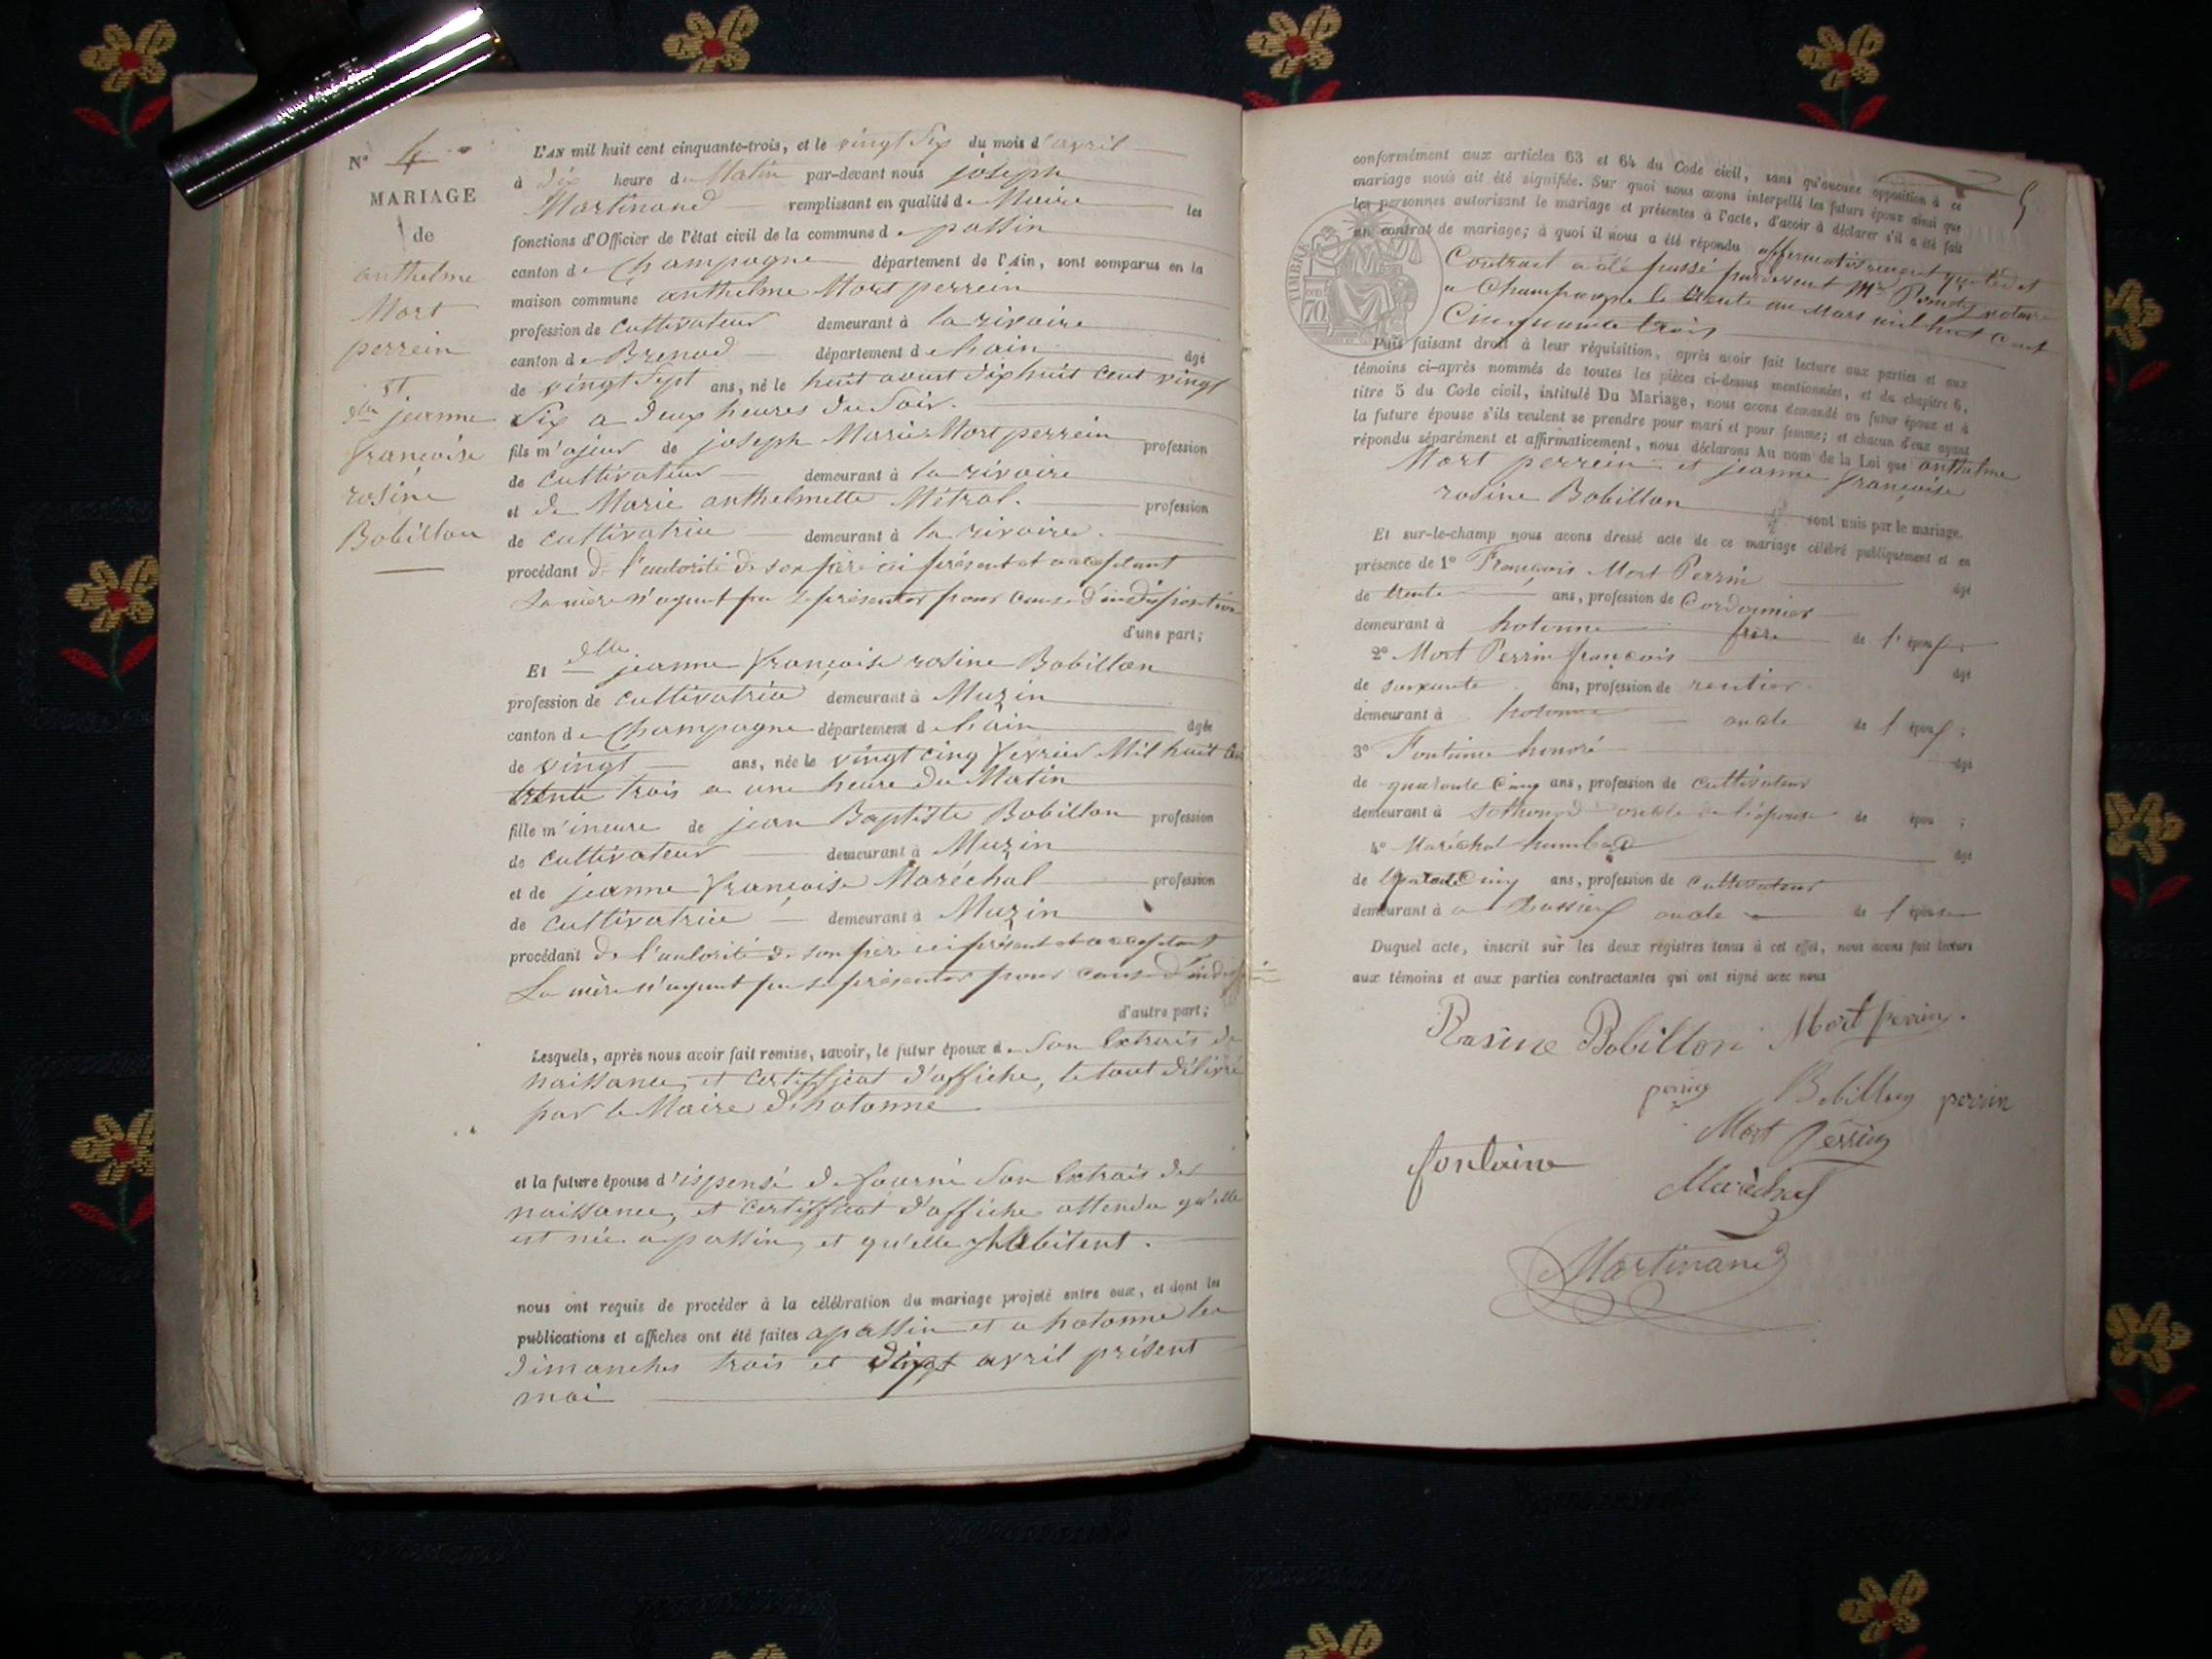 N° 4
MARIAGE
de
anthelme
Mort
perrein
et
dlle jeanne
françoise
rosine
Bobillon
L'AN mil huit cent cinquante-trois, et le vingt Six du mois d'avril
à dix heure du Matin par-devant nous joseph
Martinand remplissant en qualité de Maire les
fonctions d'Officier de l'état civil de la commune de passin
canton de Champagne département de l'Ain, sont comparus en la
maison commune anthelme Mort perrein
profession de Cultivateur demeurant à la rivoire
canton de Brenod département de l'ain âgé
de vingt Sept ans, né le huit aoust dix huit cent vingt
Six a deux heures du Soir.
fils majeur de joseph Marie Mort perrein profession
de Cultivateur demeurant à la rivoire
et de Marie anthelmette Métral. profession
de Cultivatrice demeurant à la rivoire.
procédant de l'autorité de son père ici présent et acceptant
La mère n'ayant pu se présenter pour cause d'indisposition
d'une part;
Et dlle jeanne françoise rosine Bobillon
profession de Cultivatrice demeurant à Muzin
canton de Champagne département de l'ain âgée
de vingt ans, née le vingt cinq fevrier Mil huit Cent
trente trois a une heure du Matin
fille mineure de jean Baptiste Bobillon profession
de Cultivateur demeurant à Muzin
et de jeanne françoise Maréchal profession
de Cultivatrice demeurant à Muzin
procédant de l'autorité de son père ici présent et acceptant
La mère n'ayant pu se présenter pour cause
d'autre part;
Lesquels, après nous avoir fait remise, savoir, le futur époux de Son Extrait de
naissance, et Certifficat d'affiche, le tout délivré
par le Maire d'hotonne
et la future épouse dispensé de fournir Son Extrait de
naissance, et Certifficat d'affiche attendu qu'elle
est née a passin, et qu'elle y habitent.
nous ont requis de procéder à la célébration du mariage projeté entre eux, et dont les
publications et affiches ont été faites a passin et a hotonne les
dimanches trois et avril présent
moi
5
conformément aux articles 63 et 64 du Code civil, sans qu'aucune opposition à ce
mariage nous ait été signifiée. Sur quoi nous avons interpellé les futurs époux ainsi que
les personnes autorisant le mariage et présentes à l'acte, d'avoir à déclarer s'il a été fait
un contrat de mariage; à quoi il nous a été répondu affirmativement que ledit
Contrat a été passé pardevant Me notaire
a Champagne le trente un Mars mil huit Cent
Cinquante trois
TIMBRE
70
Puis faisant droit à leur réquisition, après avoir fait lecture aux parties et aux
témoins ci-après nommés de toutes les pièces ci-dessus mentionnées, et du chapitre 6,
titre 5 du Code civil, intitulé Du Mariage, nous avons demandé au futur époux et à
la future épouse s'ils veulent se prendre pour mari et pour femme; et chacun d'eux ayant
répondu séparément et affirmativement, nous déclarons Au nom de la Loi que anthelme
Mort perrein et jeanne françoise
rosine Bobillon sont unis par le mariage.
Et sur-le-champ nous avons dressé acte de ce mariage célébré publiquement et en
présence de 1° François Mort Perrin âgé
de trente ans, profession de Cordonnier
demeurant à hotonne frère de l'époux;
2° Mort Perrin françois âgé
de soixante ans, profession de rentier
demeurant à hotonne oncle de l'époux;
3° Fontaine honoré âgé
de quarante Cinq ans, profession de Cultivateur
demeurant à Sothonod oncle de l'épouse de épou ;
4° Maréchal humbert âgé
de Cinq ans, profession de Cultivateur
demeurant à oncle de l'épouse
Duquel acte, inscrit sur les deux régistres tenus à cet effet, nous avons fait lecture
aux témoins et aux parties contractantes qui ont signé avec nous
Rosine Bobillon Mort perrin.
perrin Bobillon perrin
Mort Perrin
fontaine
Maréchal
Martinand